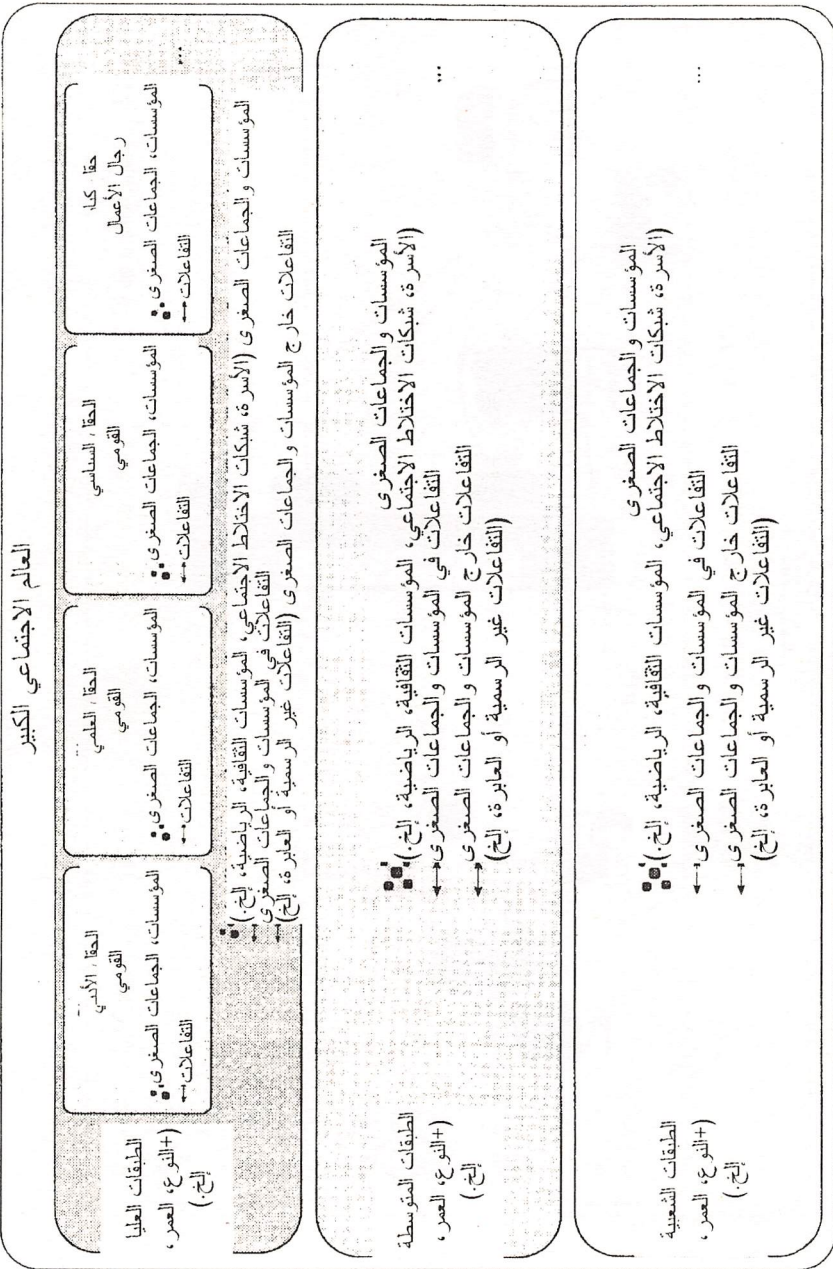 العالم الاجتماعي الكبير
الطبقات العليا
(+النوع، العمر،
إلخ.)
الحقل الأدبي
القومي
المؤسسات، الجماعات الصغرى
التفاعلات
الحقل العلمي
القومي
المؤسسات، الجماعات الصغرى
التفاعلات
الحقل السياسي
القومي
المؤسسات، الجماعات الصغرى
التفاعلات
رجال الأعمال
المؤسسات، الجماعات الصغرى
التفاعلات
...
المؤسسات والجماعات الصغرى (الأسرة، شبكات الاختلاط الاجتماعي، المؤسسات الثقافية، الرياضية، إلخ.)
التفاعلات في المؤسسات والجماعات الصغرى
التفاعلات خارج المؤسسات والجماعات الصغرى (التفاعلات غير الرسمية أو العابرة، إلخ)
الطبقات المتوسطة
(+النوع، العمر،
إلخ.)
المؤسسات والجماعات الصغرى
(الأسرة، شبكات الاختلاط الاجتماعي، المؤسسات الثقافية، الرياضية، إلخ.)
التفاعلات في المؤسسات والجماعات الصغرى
التفاعلات خارج المؤسسات والجماعات الصغرى
(التفاعلات غير الرسمية أو العابرة، إلخ)
...
الطبقات الشعبية
(+النوع، العمر،
إلخ.)
المؤسسات والجماعات الصغرى
(الأسرة، شبكات الاختلاط الاجتماعي، المؤسسات الثقافية، الرياضية، إلخ.)
التفاعلات في المؤسسات والجماعات الصغرى
التفاعلات خارج المؤسسات والجماعات الصغرى
(التفاعلات غير الرسمية أو العابرة، إلخ)
...